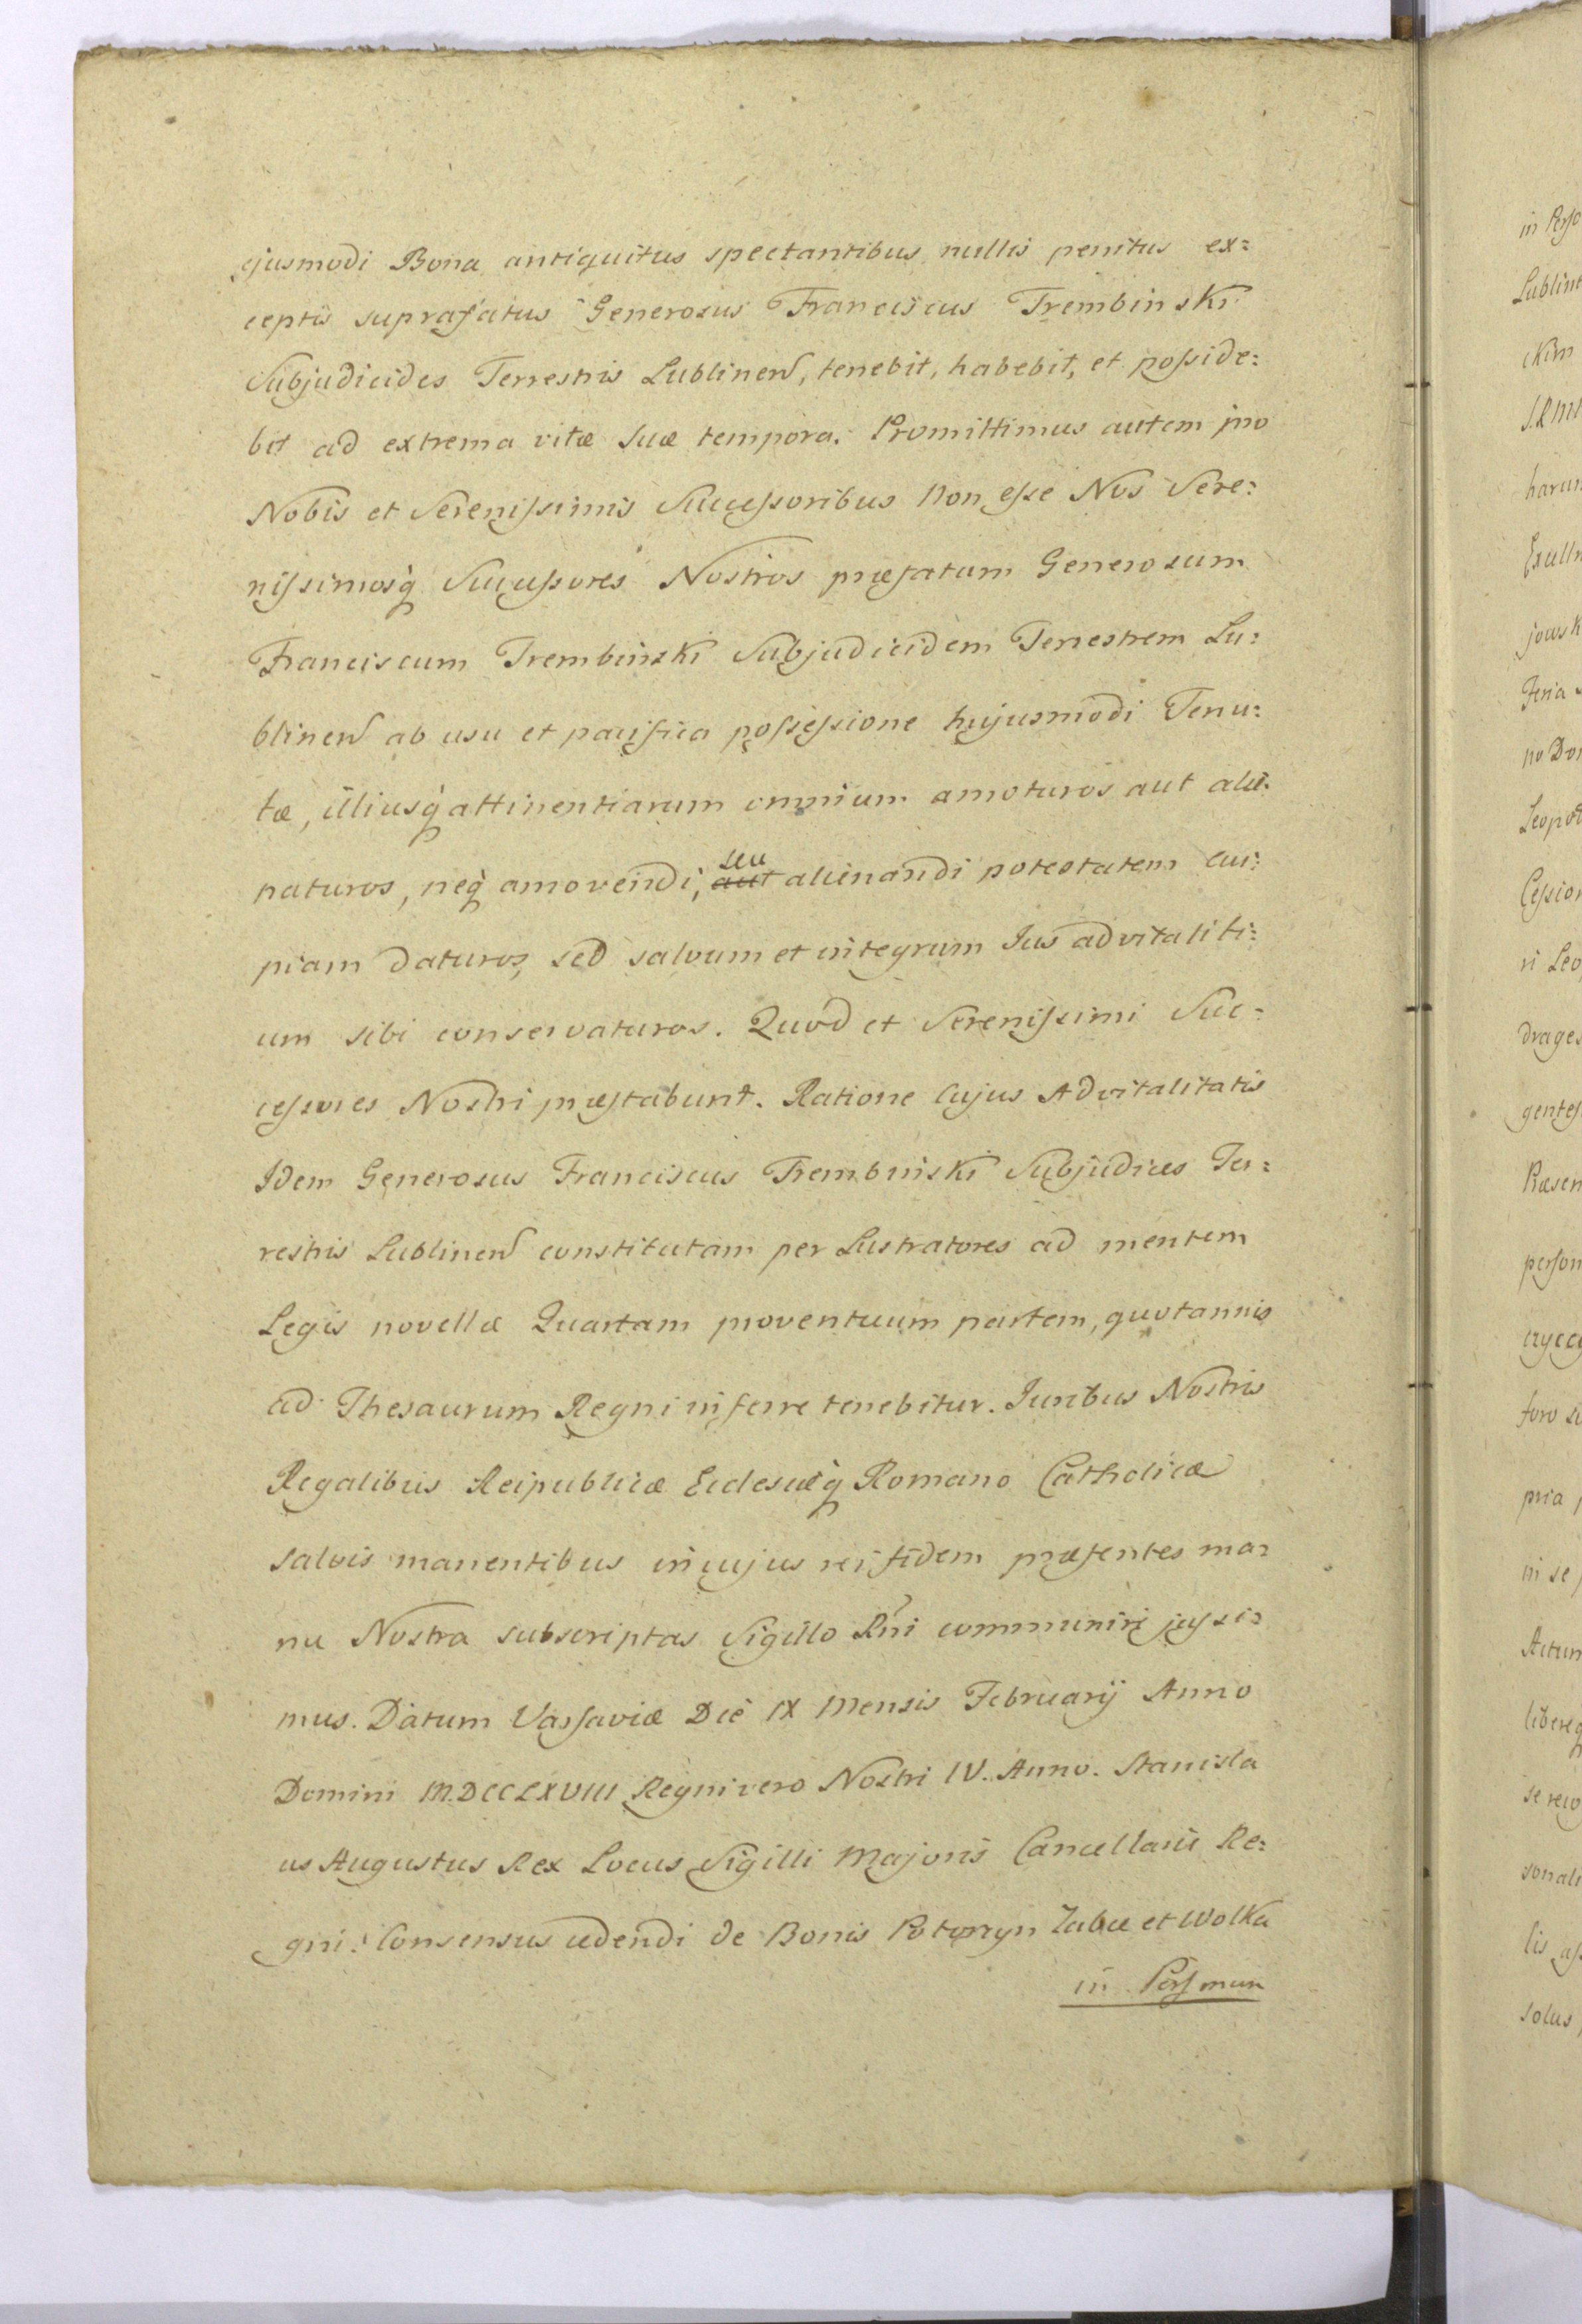 ejusmodi Bona antiquitus spectantibus nullis penitus ex=
ceptis suprafatus Generosus Franciscus Trembinski
Subjudicides Terrestris Lublinen, tenebit, habebit, et posside=
bit ad extrema vitæ suæ tempora. Promittimus autem pro
Nobis et Serenissimis Successoribus Non esse Nos Sere=
nissimosq Successores Nostros præfatum Generosum
Franciscum Trembinski Subjudicidem Terrestrem Lu=
blinen ab usu et pacifica possessione hujusmodi Tenu=
tæ, illiusq attinentiarum omnium amoturos aut alie=
naturos, neq amovendi, aut seu alienandi potestatem cui=
piam daturos, sed salvum et integrum Jus advitaliti=
um sibi conservaturos. Quod et Serenissimi Suc=
cessores Nostri præstabunt. Ratione Cujus Advitalitatis
Idem Generosus Franciscus Trembinski Subjudices Ter=
restris Lublinen constitutam per Lustratores ad mentem
Legis novellæ Quartam proventuum partem, quotannis
ad Thesaurum Regni inferre tenebitur. Juribus Nostris
Regalibus Reipublicæ Ecclesiæq Romano Catholicæ
salvis manentibus in cujus rei fidem præsentes ma=
nu Nostra subscriptas Sigillo Rni communiri jussi=
mus. Datum Varsaviæ Die IX Mensis Februarij Anno
Domini M.DCCLXVIII Regni vero Nostri IV. Anno. Stanisla
us Augustus Rex Locus Sigilli Majoris Cancellarii Re=
gni: Consensus cedendi de Bonis et Wolka
in
in Perso
ckim
harum
Feria
no Do
ri Leo
drages
gentes
Præsen
person
foro
pria
ni se
Actum
solus